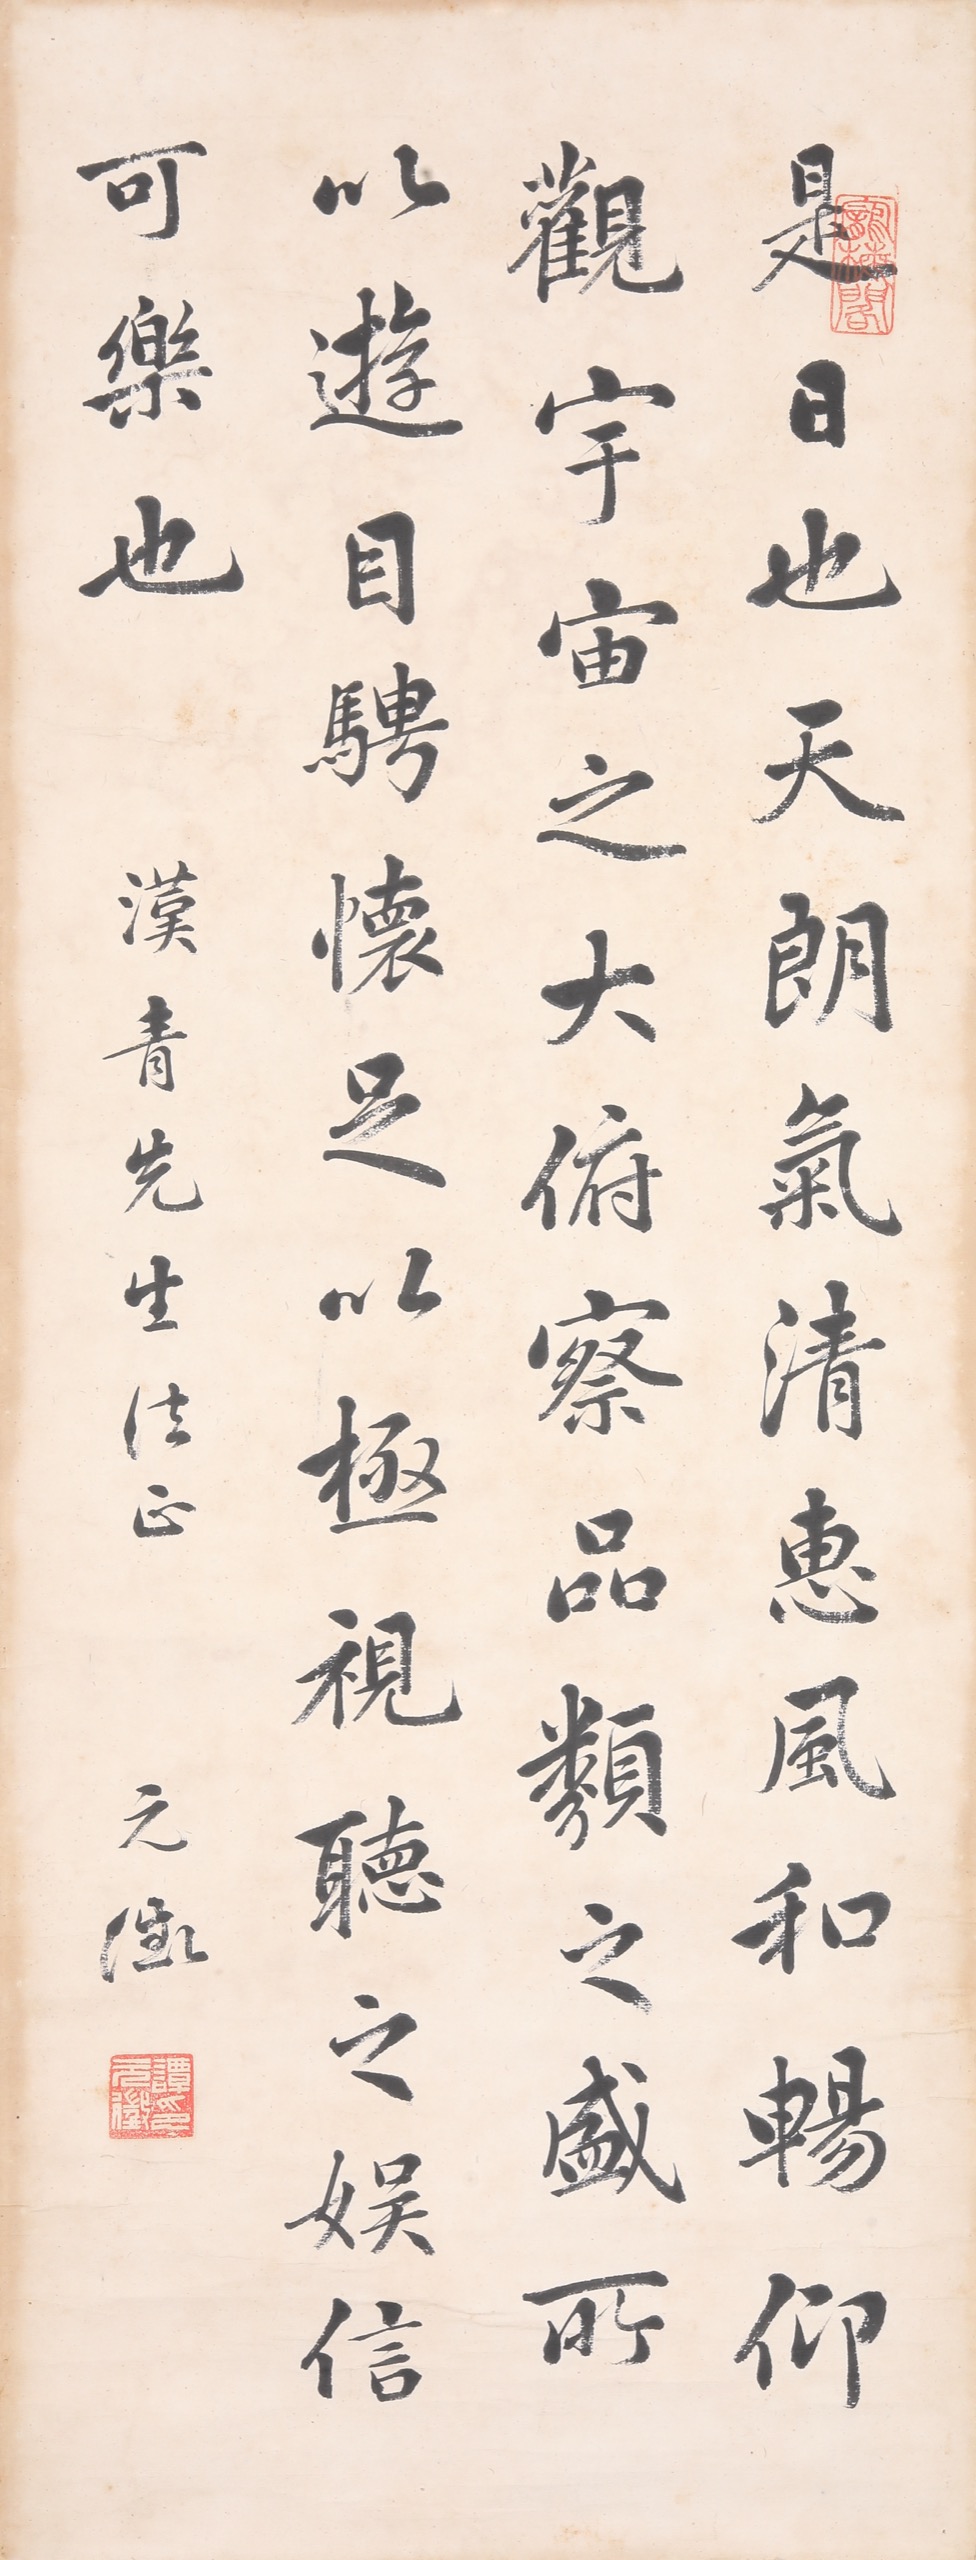 是日也天朗氣清惠風和暢仰
觀宇宙之大俯察品類之盛所
以遊目騁懷足以極視聽之娛信
可樂也
漢青先生法正
元徵
譚印元徵